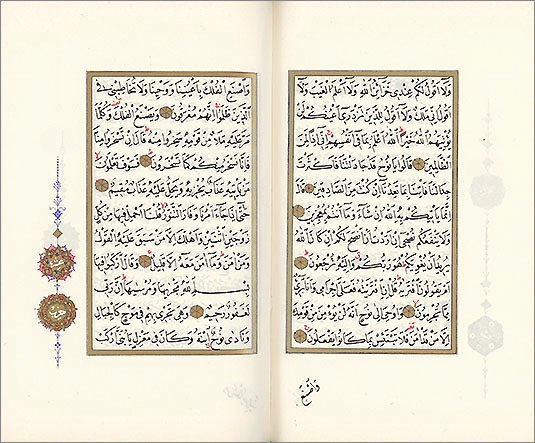 وَلَا أَقُولُ لَكُمْ عِنْدِي خَزَائِنُ اللَّهِ وَلَا أَعْلَمُ الْغَيْبَ وَلَا
أَقُولُ إِنِّي مَلَكٌ وَلَا أَقُولُ لِلَّذِينَ تَزْدَرِي أَعْيُنُكُمْ لَنْ
يُؤْتِيَهُمُ اللَّهُ خَيْرًا اللَّهُ أَعْلَمُ بِمَا فِي أَنْفُسِهِمْ إِنِّي إِذًا لَمِنَ
الظَّالِمِينَ قَالُوا يَا نُوحُ قَدْ جَادَلْتَنَا فَأَكْثَرْتَ
جِدَالَنَا فَأْتِنَا بِمَا تَعِدُنَا إِنْ كُنْتَ مِنَ الصَّادِقِينَ قَالَ
إِنَّمَا يَأْتِيكُمْ بِهِ اللَّهُ إِنْ شَاءَ وَمَا أَنْتُمْ بِمُعْجِزِينَ
وَلَا يَنْفَعُكُمْ نُصْحِي إِنْ أَرَدْتُ أَنْ أَنْصَحَ لَكُمْ إِنْ كَانَ اللَّهُ
يُرِيدُ أَنْ يُغْوِيَكُمْ هُوَ رَبُّكُمْ وَإِلَيْهِ تُرْجَعُونَ
أَمْ يَقُولُونَ افْتَرَاهُ قُلْ إِنِ افْتَرَيْتُهُ فَعَلَيَّ إِجْرَامِي وَأَنَا بَرِيءٌ
مِمَّا تُجْرِمُونَ وَأُوحِيَ إِلَى نُوحٍ أَنَّهُ لَنْ يُؤْمِنَ مِنْ قَوْمِكَ
إِلَّا مَنْ قَدْ آمَنَ فَلَا تَبْتَئِسْ بِمَا كَانُوا يَفْعَلُونَ
وَاصْنَعِ
وَاصْنَعِ الْفُلْكَ بِأَعْيُنِنَا وَوَحْيِنَا وَلَا تُخَاطِبْنِي فِي
الَّذِينَ ظَلَمُوا إِنَّهُمْ مُغْرَقُونَ وَيَصْنَعُ الْفُلْكَ وَكُلَّمَا
مَرَّ عَلَيْهِ مَلَأٌ مِنْ قَوْمِهِ سَخِرُوا مِنْهُ قَالَ إِنْ تَسْخَرُوا مِنَّا
فَإِنَّا نَسْخَرُ مِنْكُمْ كَمَا تَسْخَرُونَ فَسَوْفَ تَعْلَمُونَ
مَنْ يَأْتِيهِ عَذَابٌ يُخْزِيهِ وَيَحِلُّ عَلَيْهِ عَذَابٌ مُقِيمٌ
حَتَّى إِذَا جَاءَ أَمْرُنَا وَفَارَ التَّنُّورُ قُلْنَا احْمِلْ فِيهَا مِنْ كُلٍّ
زَوْجَيْنِ اثْنَيْنِ وَأَهْلَكَ إِلَّا مَنْ سَبَقَ عَلَيْهِ الْقَوْلُ
وَمَنْ آمَنَ وَمَا آمَنَ مَعَهُ إِلَّا قَلِيلٌ وَقَالَ ارْكَبُوا فِيهَا
بِسْمِ اللَّهِ مَجْرَاهَا وَمُرْسَاهَا إِنَّ رَبِّي
لَغَفُورٌ رَحِيمٌ وَهِيَ تَجْرِي بِهِمْ فِي مَوْجٍ كَالْجِبَالِ
وَنَادَى نُوحٌ ابْنَهُ وَكَانَ فِي مَعْزِلٍ يَا بُنَيَّ ارْكَبْ